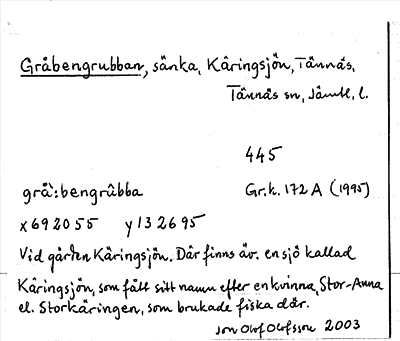 Gråbengrubban, sänka, Käringsjön, Tännäs,
Tännäs sn, Jämtl. l.
445
grå`:bengrùbba Gr.k. 172 A (1995)
x 692055 y 132695
Vid gården Käringsjön. Där finns äv. en sjö kallad
Käringsjön, som fått sitt namn efter en kvinna, Stor-Anna
el. Storkäringen, som brukade fiska där.
Jon Olof Olofsson 2003